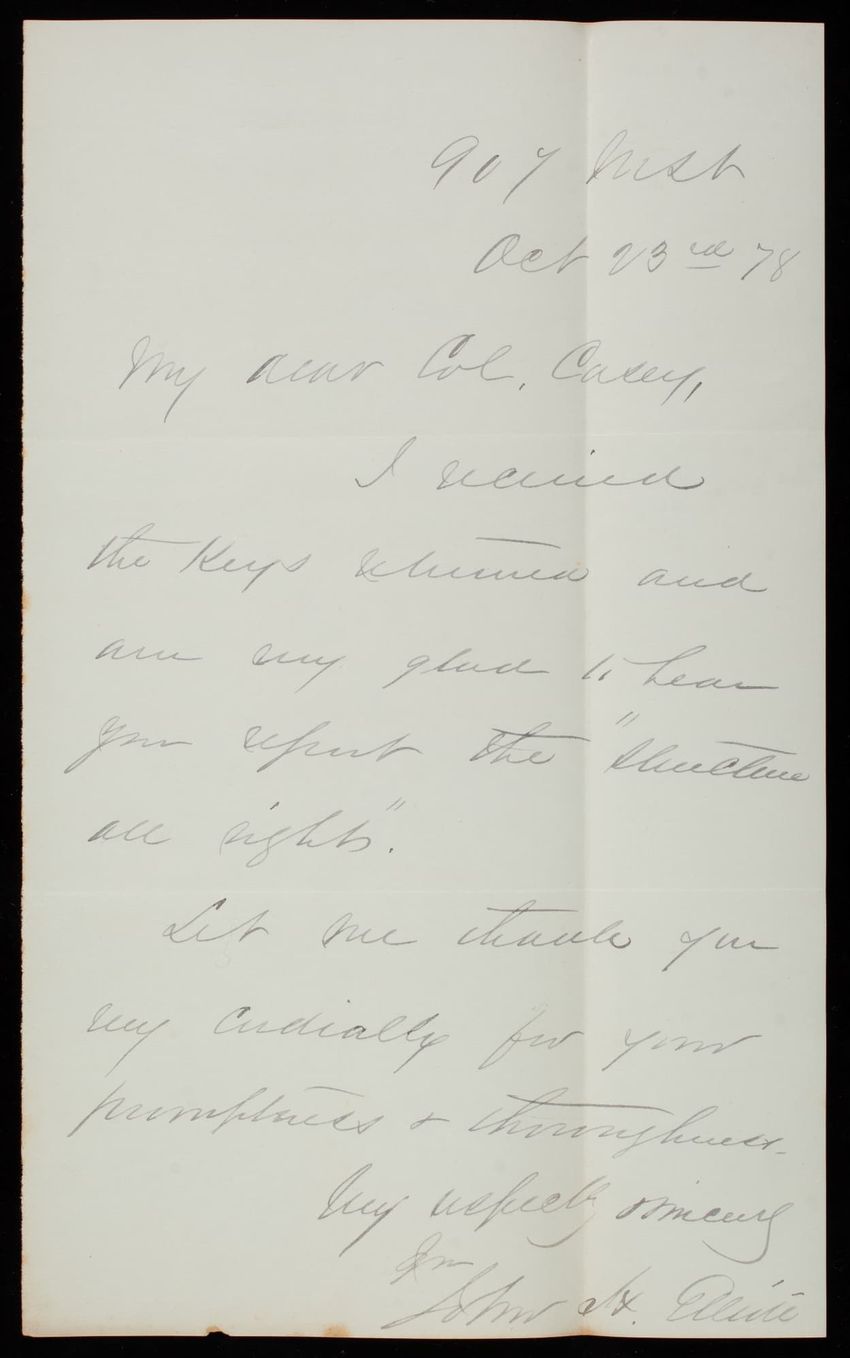 907 M St
Oct 23rd 78
My dear Col. Casey,
I received
the Keys returned and
am very glad to hear
you report the "structure
all right".
Let me thank you
very cordially for your
promptness & thoroughness.
Very respectly & sincerely
Yrs
John H. Elliott